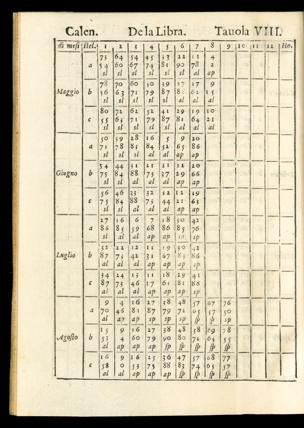 Calen. Dela Libra. Tauola VIII.
di mesi stel. 1 2 3 4 5 6 7 8 9 10 11 12 Ho.
75 64 54 45 33 22 11 4
a 54 60 67 74 81 90 78 2
sl sl sl sl al al al ap
78 70 60 50 39 27 17 9
Maggio b 56 63 71 79 87
sl sl sl sl al al al al
80 72 62 52 41 29 19 10
c 55 63 71 79 87 81 64 21
sl sl sl al al al al al
50 39 28 16 5 9 20
a 71 78 85 84 52 65 86
sl sl sl al al ap ap
54 44 31 21 11 12 20
Giugno b 75 84 88 75 37 29 66
sl sl al al al ap ap
56 46 12 12 19
c 75 84 88 75 44 21 63
sl sl al al al ap ap
27 16 6 7 18 30 42
a 86 85 59 68 86 85 76
sl al al ap ap ap
32 22 12 11 19 30 42
Luglio b 87 73 42 31 67 83 86
sl al al ap ap ap ap
34 24 13 11 18 29 41
c 87 73 46 17 61 81 88
sl al al ap ap ap ap
9 4 16 27 38 48 57 67 76
a 70 46 81 87 79 72 65 57 50
al ap ap ap ap sp sp sp
15 9 16 27 38 48 58 69 78
Agosto b 53 4 60 79 90 80 72 64 55
al ap ap ap sp sp sp sp sp
16 9 16 25 36 47 57 68 77
c 58 0 53 75 88 83 74 65 57
al al ap ap ap sp sp sp sp